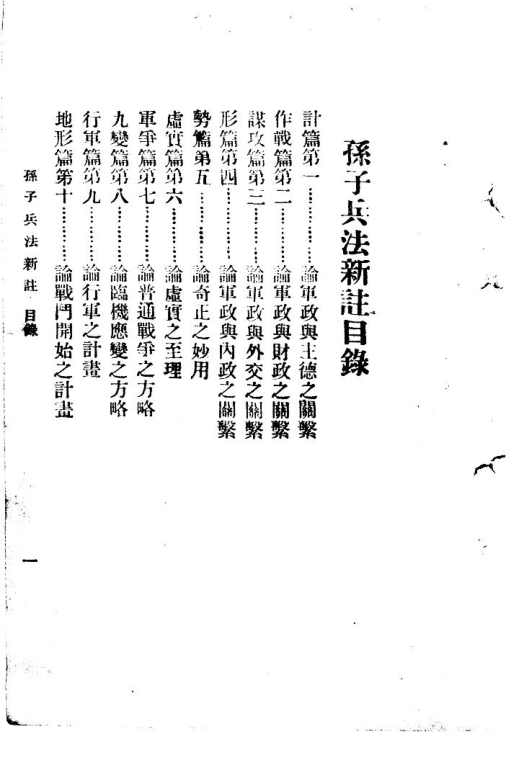 孫子兵法新註目錄
計篇第一…………論軍政與主德之關繫
作戰篇第二…………論軍政與財政之關繫
謀攻篇第三…………論軍政與外交之關繫
形篇第四…………論軍政與內政之關繫
勢篇弟五…………論奇正之妙用
虛實篇第六…………論虛實之至理
軍爭篇第七…………論普通戰爭之方略
九變篇第八…………論臨機應變之方略
行軍篇第九…………論行軍之計畫
地形篇第十…………論戰鬥開始之計畫
孫子兵法新註 目錄
一